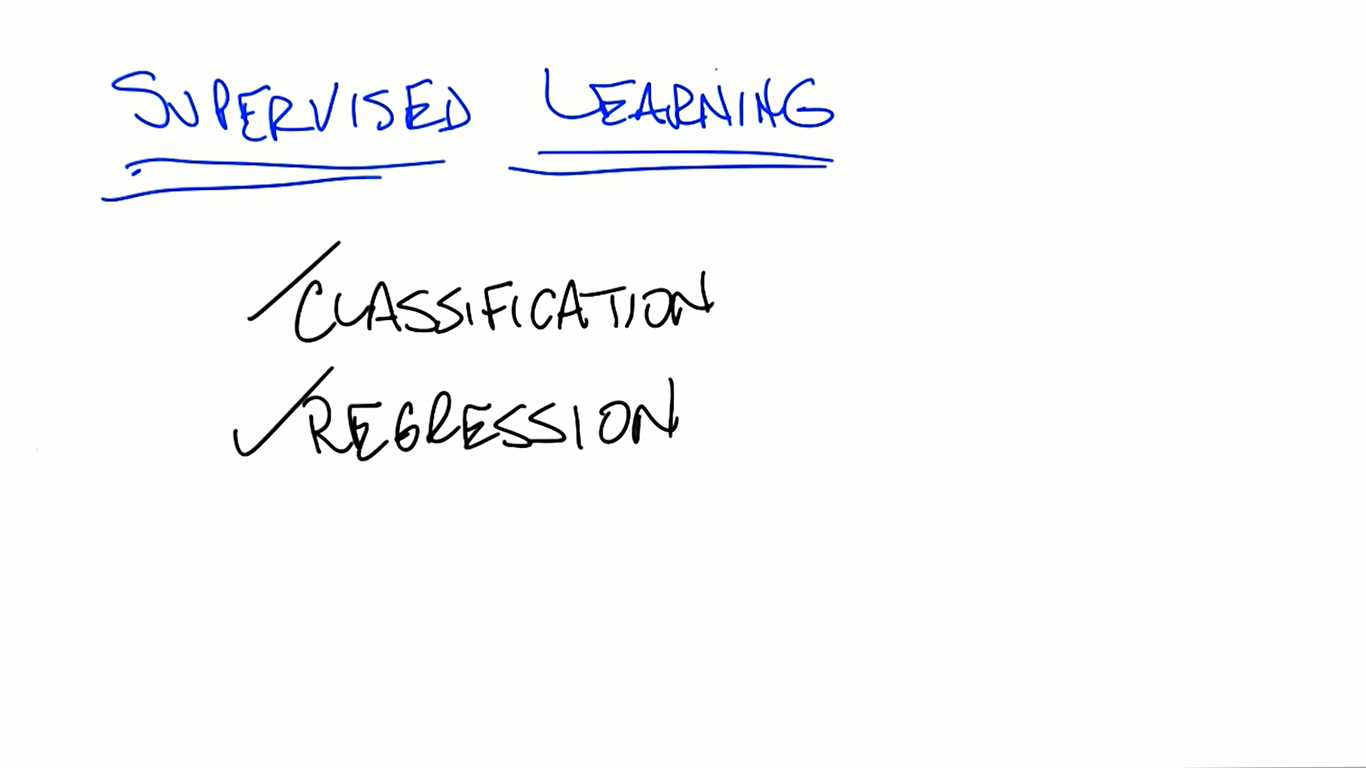 SUPERVISED LEARNING
CLASSIFICATION
REGRESSION